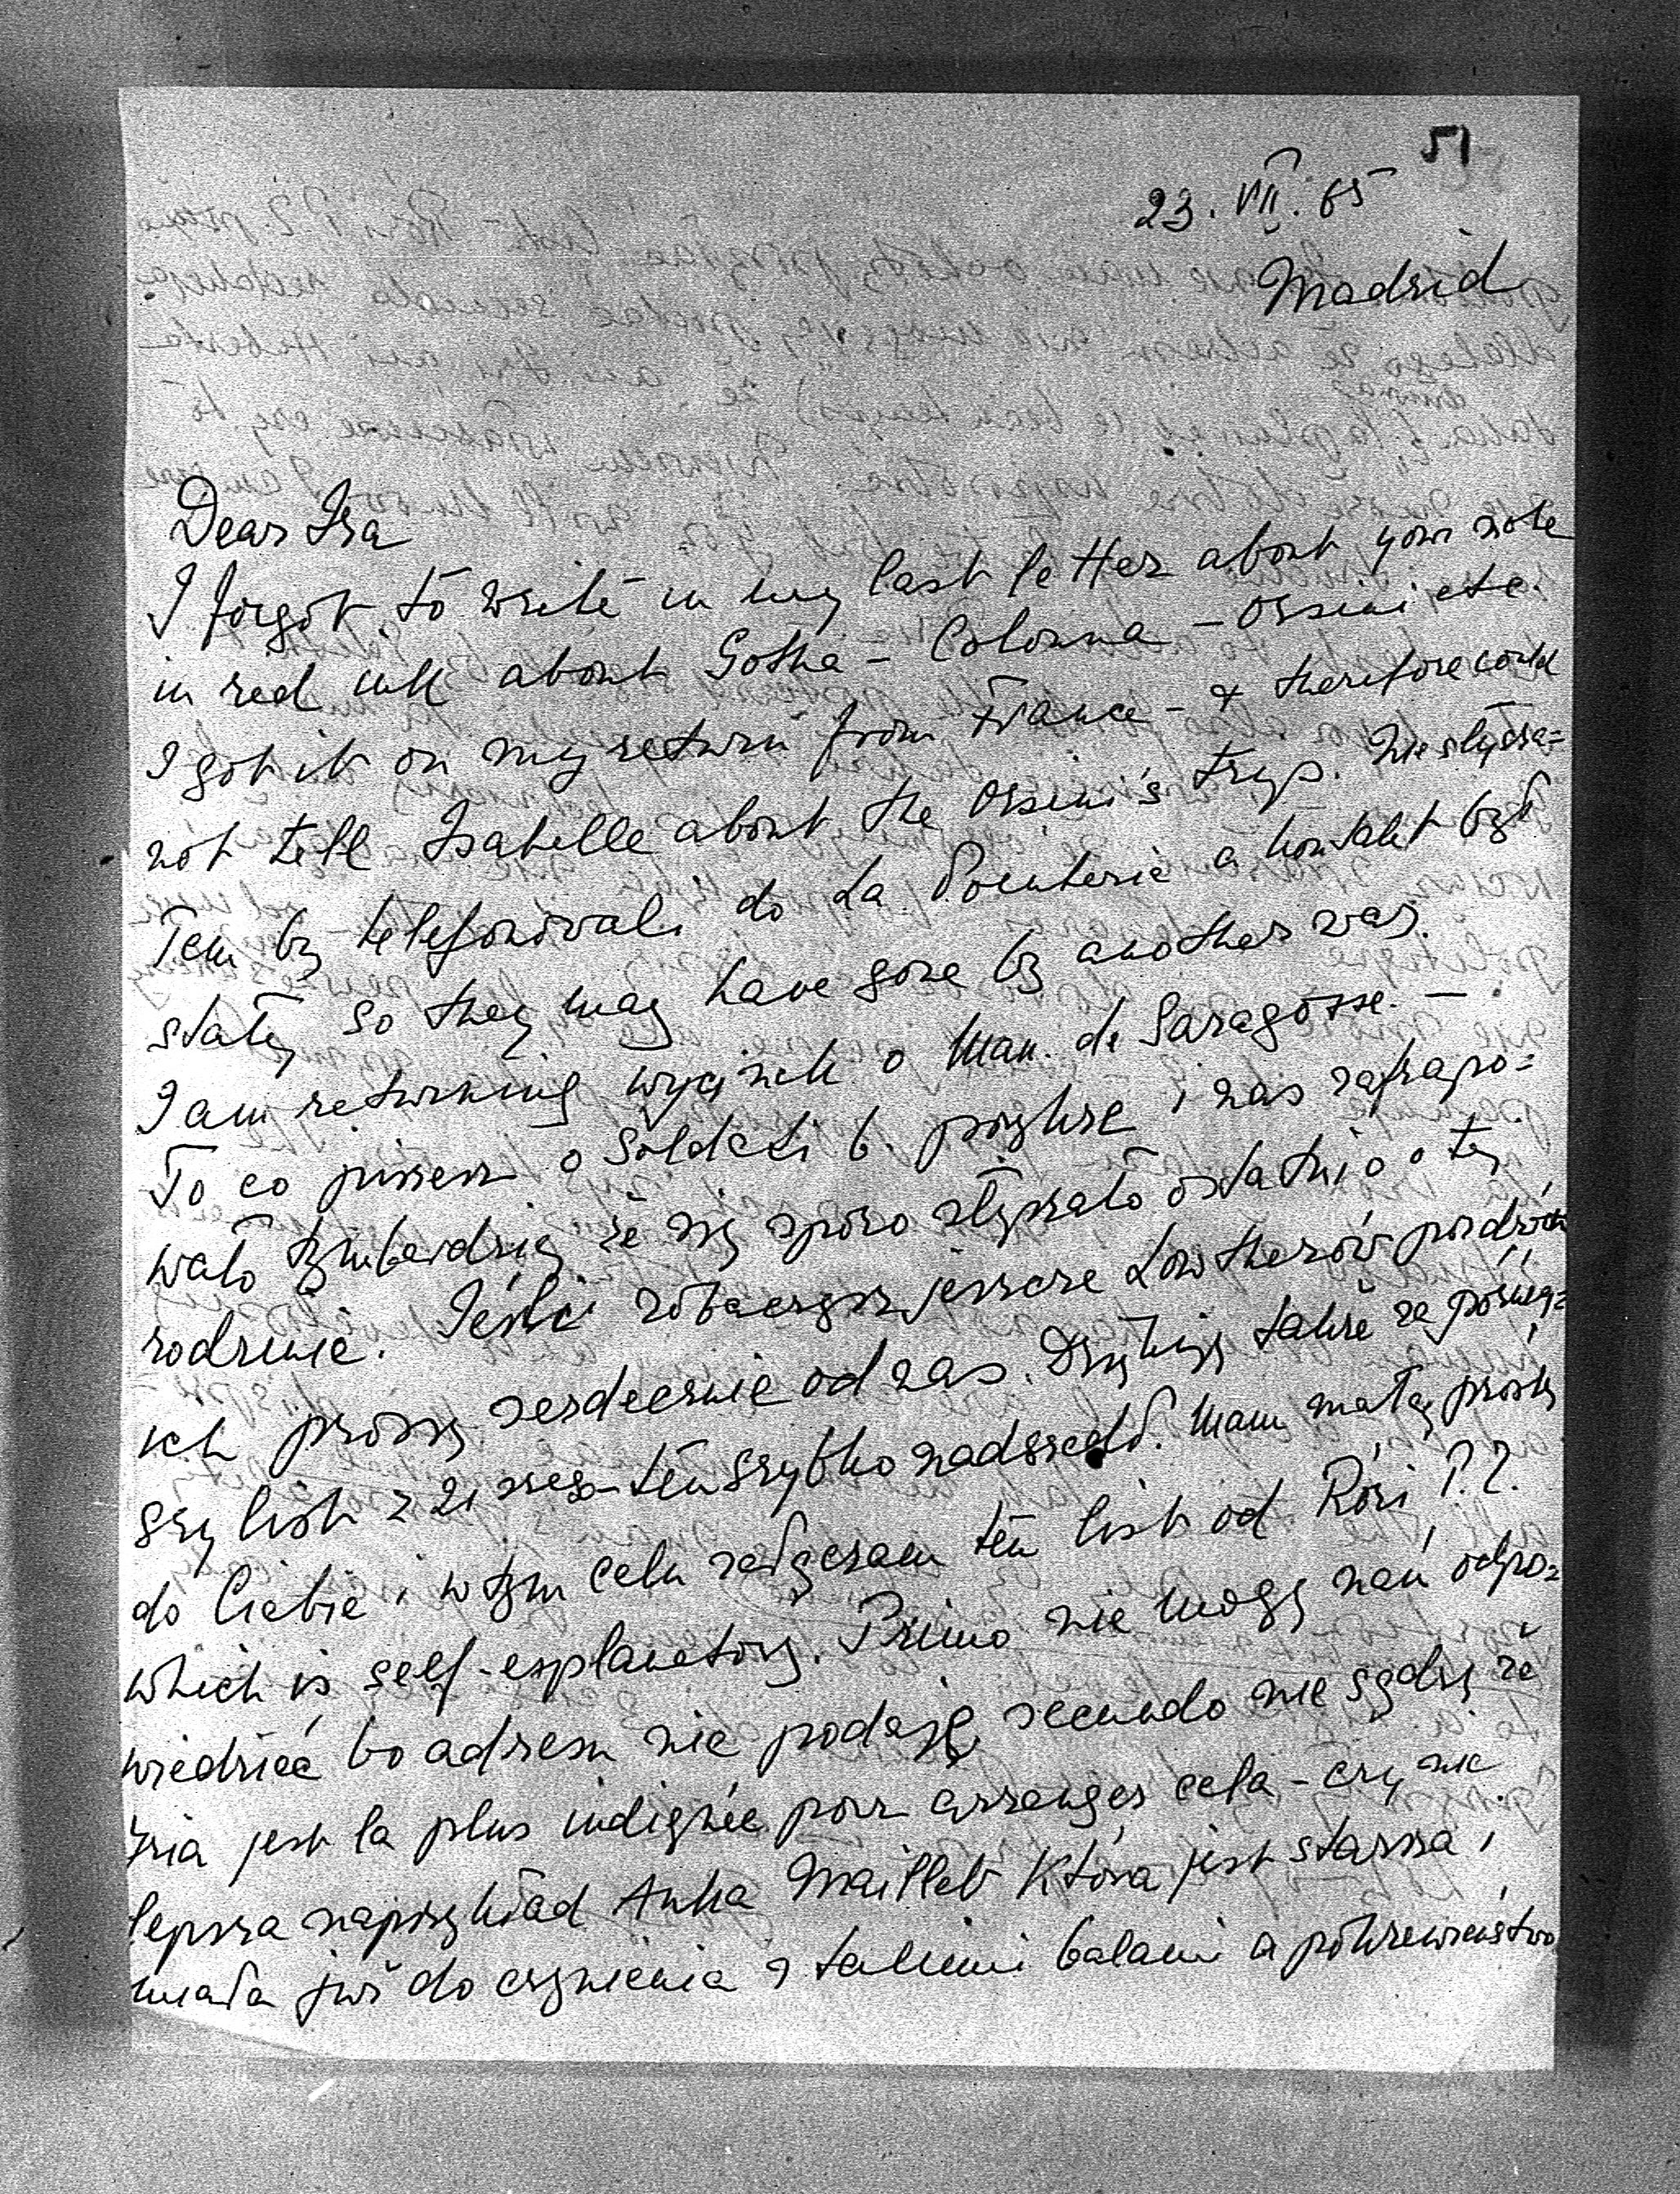 51
23. VII. 65
Madrid
Dear Isa
I forgot to write in my last letter about your note
in red ink about Gotha – Colonna – Orsini etc.
I got it on my return from France – & therefore could
not tell Isabelle about the Orsini's trip. Nie słysza=
łem by telefonowali do La a kontakt był
stały so they may have gone by another way.
I am returning wycinek o Man. de Saragosse. –
To co piszesz o Soldati b. przykre i nas zafrapo=
wało tymbardziej że się sporo słyszało ostatnio o tej
rodzinie. Jeśli zobaczysz jeszcze Lowtherów pozdrów
ich proszę serdecznie od nas. Dziękuję także za
szy list z 21 szego – ten szybko nadszedł. Mam małą prośbę
do Ciebie i w tym celu załączam ten list od Rózi P.Z.
which is self-explanatory. Primo nie mogę nań odpo=
wiedzieć bo adresu nie podaje, secundo nie sądzę że
Izia jest la plus indiquée pour arranger cela – czy nie
lepsza naprzykład Anka Maillet która jest starsza i
miała już do czynienia z takimi balami a pokrewieństwo